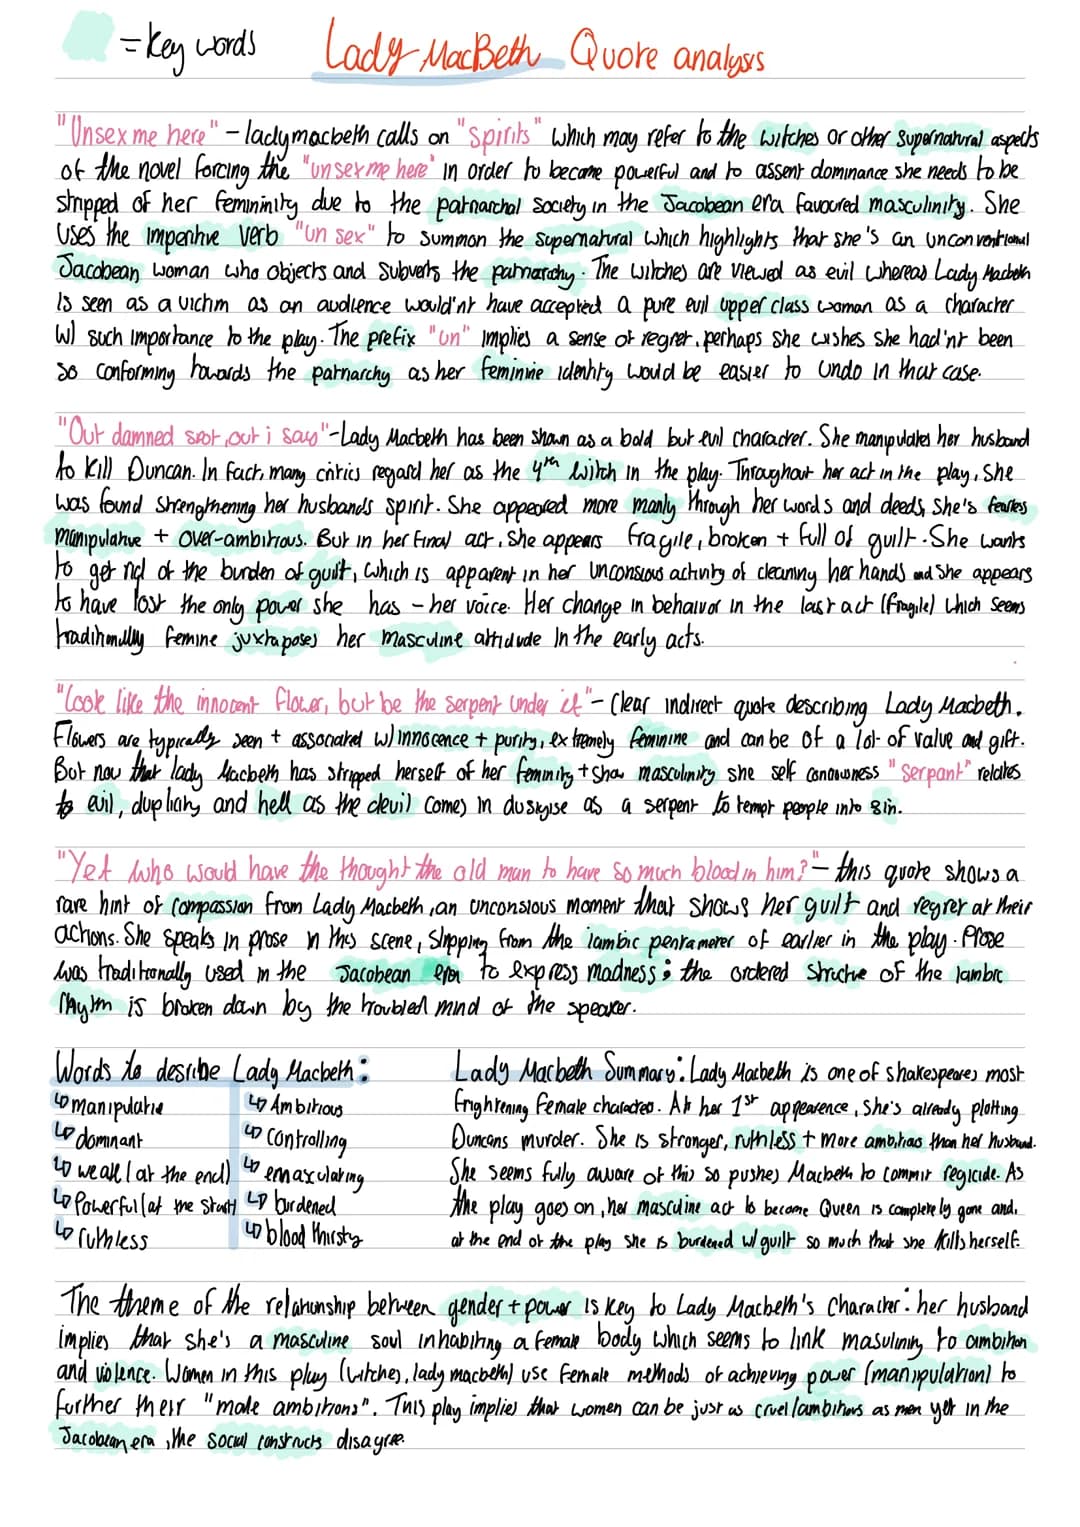 = key words
Lady MacBeth Quote analysis
"Unsex me here" - lady macbeth calls on "spirits" which may refer to the witches or other supernatural aspects
of the novel forcing the "unsex me here" in order to become powerful and to assent dominance she needs to be
stripped of her femininity due to the patriarchal society in the Jacobean era favoured masculinity. She
uses the imperitive verb "un sex" to summon the supernatural which highlights that she's an unconventional
Jacobean woman who objects and subverts the patriarchy. The witches are viewed as evil whereas Lady Macbeth
is seen as a victim as an audience would'nt have accepted a pure evil upper class woman as a character
w/ such importance to the play. The prefix "un" implies a sense of regret, perhaps she wishes she had'nt been
so conforming towards the patriarchy as her feminine identity would be easier to undo in that case.
"Out damned spot, out i say" - Lady Macbeth has been shown as a bold but evil character. She manipulates her husband
to kill Duncan. In fact, many critics regard her as the 4th witch in the play. Throughout her act in the play, she
was found strengthening her husbands spirit. She appeared more manly through her words and deeds, she's fearless
manipulative + over-ambitious. But in her final act, she appears fragile, broken + full of guilt. She wants
to get rid of the burden of guilt, which is apparent in her unconsious activity of cleaning her hands and she appears
to have lost the only power she has - her voice. Her change in behaivor in the last act (fragile) which seems
traditionally femine juxtaposes her masculine attidude in the early acts.
"Look like the innocent flower, but be the serpent under it" - Clear indirect quote describing Lady Macbeth.
Flowers are typically seen + associated w/ innocence + purity, extremely feminine and can be of a lot of value and gift.
But now that lady Macbeth has stripped herself of her feminity + show masculinity she self "Serpant" relates
to evil, duplicity and hell as the devil comes in dusigise as a serpent to tempt people into sin.
"Yet who would have the thought the old man to have so much blood in him?" - this quote shows a
rare hint of compassion from Lady Macbeth, an unconsious moment that shows her guilt and regret at their
actions. She speaks in prose in this scene, slipping from the iambic pentameter of earlier in the play. Prose
was traditionally used in the Jacobean era to express madness; the ordered structre of the iambic
rhytm is broken down by the troubled mind of the speaker.
Words to desribe Lady Macbeth:
↳ manipulative
↳ dominant
↳ weak (at the end)
↳ Powerful (at the start)
↳ ruthless
↳ Ambitious
↳ controlling
↳ emasculating
↳ burdened
↳ blood thirsty
Lady Macbeth Summary: Lady Macbeth is one of shakespeares most
frightening female characters. At her 1st appearence, she's already plotting
Duncans murder. She is stronger, ruthless + more ambitious than her husband.
She seems fully aware of this so pushes Macbeth to commit regicide. As
the play goes on, her masculine act to become Queen is completely gone and,
at the end of the play she is burdened w/ guilt so much that she kills herself.
The theme of the relationship between gender + power is key to Lady Macbeth's character: her husband
implies that she's a masculine soul inhabiting a female body which seems to link masulinity to ambition
and violence. Women in this play (witches, lady macbeth) use female methods of achieving power (manipulation) to
further their "male ambitions". This play implies that women can be just as cruel/ambitious as men yet in the
Jacobean era, the social constructs disagree.